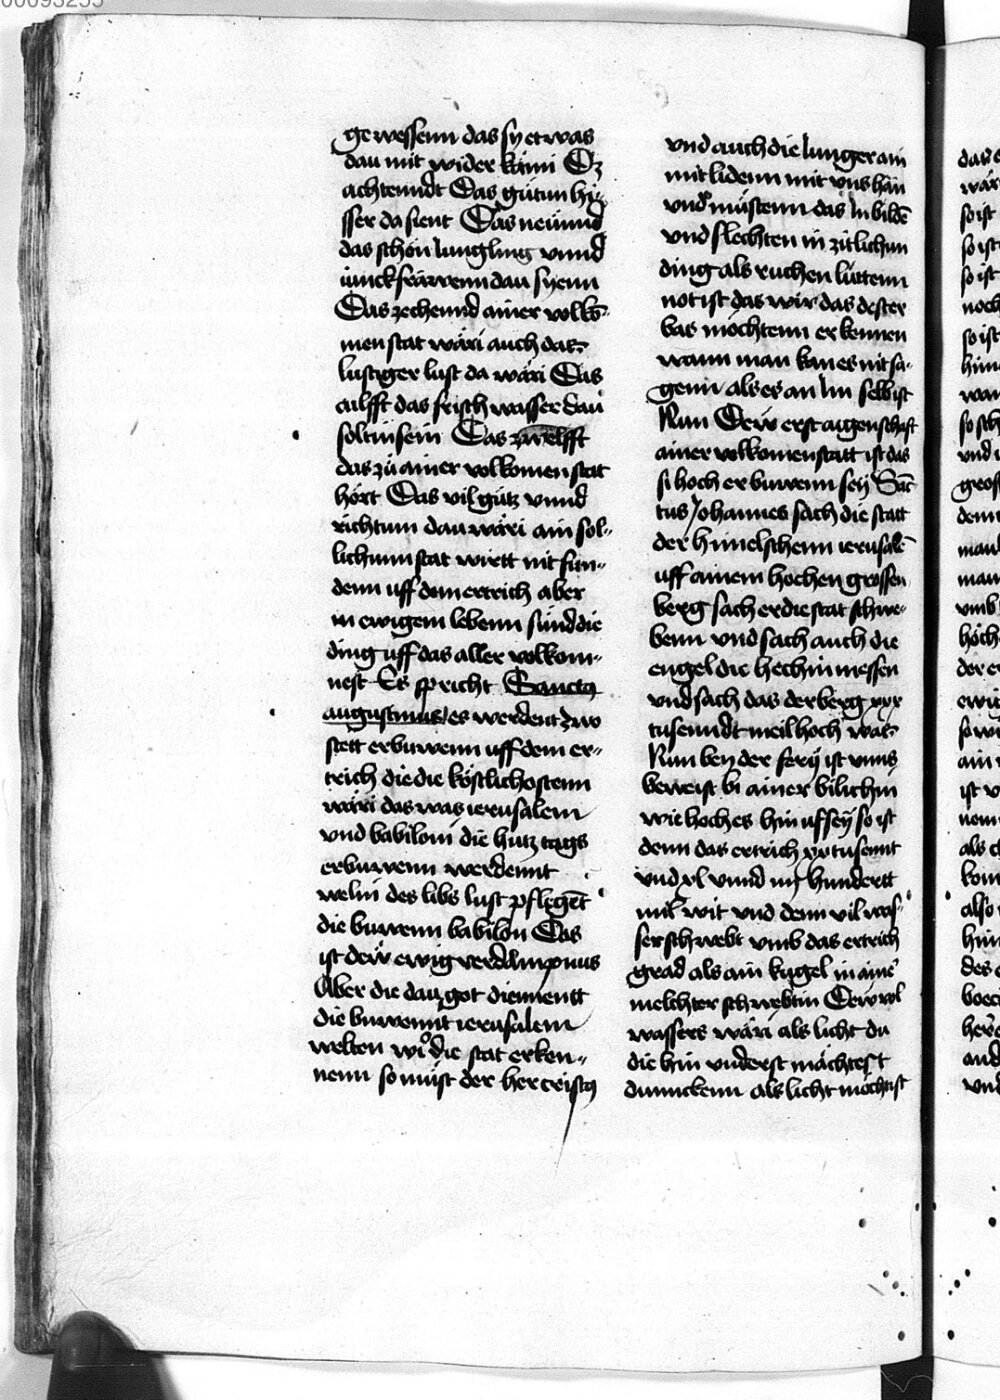 00093255
gewessenn das sy etwas
dau mit wider kämi Dz
achtenndt Das gůtun hü-
sser da sient Das neünnd
das schön Jungling vnnd
iunckfrawenn dau syenn
Das zechennd ainer volko-
men stat wäri auch das
lustiger lust da wäri Das
ailfft das frisch wasser dau
soltin sein Das zwelfft
das zů ainer volkomen statt
hört Das vil gůtz vnnd
richtum dau wäri ain sol-
lichunn stat wirtt nit fun-
denn uff dem ertrich aber
in ewigem lebenn sund die
ding uff das aller volkom-
nest Es spricht Sanctus
augustinus es werdent zwo
stett erbuwenn uff dem er-
trich die die köstlichostenn
wäri das was ierusalem
vnd babiloni die hutz tags
erbuwenn werdennt
welin des libs lust pflegēt
die buwenn babilon Das
ist dew ewig verdampnus
Aber die dau got diennentt
die buwennt ierusalem
welten wir die stat erken-
nenn so můst der her cristus
vnd auch die Junger ain
mitlidenn mit vns hān
vnd můstenn das Jn bildē
vnd flechten in zitlichun
ding als ruchen lüttenn
not ist das wir das dester
bas möchtenn erkennen
wann man kan es nit sa-
genn als es an Jm selb ist
Nun Dew erst aigenschaft
ainer volkomen statt ist das
si hoch erbuwenn sey Sāc-
tus Johannes sach die statt
der himelschenn ierusalē
uff ainem hochen grossen
berg sach er die stat schwe-
benn vnd sach auch die
engel die hechin messen
vnd sach das der berg xxx
tusenndt meil hoch was
Nun bey der ferij ist vnns
beweist bi ainer bilichin
wie hoch es hin uf sey so ist
denn das ertrich xx tusennt
vnd xl vnnd iiij hundertt
mil wit vnd denn vil was-
ser schwebt vmb das ertrich
grad als ain kugel in ainē
melchter schwebtin Dew wol
wassers wäri als licht du
die hin vnderst mächtest
dunnckenn als licht möchtist